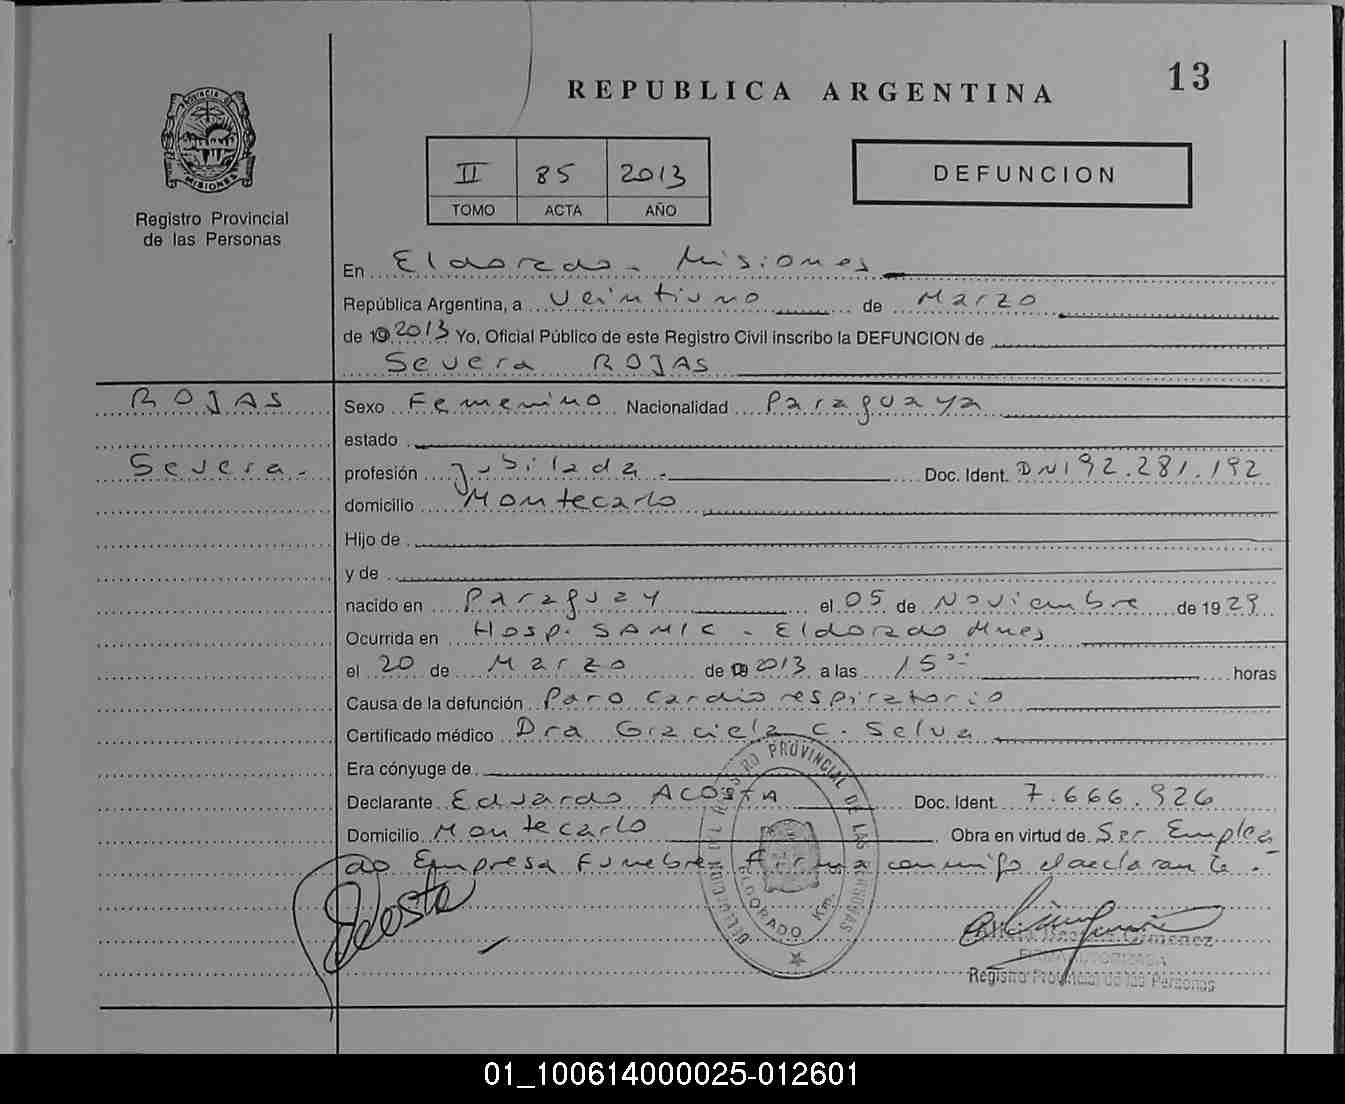 13
REPUBLICA ARGENTINA
PROVINCIA DE
MISIONES
Registro Provincial
de las Personas
II 85 2013
TOMO ACTA AÑO
DEFUNCION
En Eldorado - Misiones
República Argentina, a veintiuno de Marzo
de 19 2013 Yo, Oficial Público de este Registro Civil inscribo la DEFUNCION de
Severa ROJAS
ROJAS
Severa.
Sexo Femenino Nacionalidad Paraguaya
estado
profesión Jubilada. Doc. Ident. DNI 92.281.192
domicilio Montecarlo
Hijo de
y de
nacido en Paraguay el 05 de Noviembre de 1929
Ocurrida en Hosp. SAMIC - Eldorado Mnes
el 20 de Marzo de 2013 a las 15 horas
Causa de la defunción Paro cardiorespiratorio
Certificado médico Dra Graciela C. Selva
Era cónyuge de
Declarante Eduardo ACOSTA Doc. Ident. 7.666.926
Domicilio Montecarlo Obra en virtud de Ser Emplea
do Empresa Funebre. Firma conmigo el declarante.
Acosta
REGISTRO PROVINCIAL DE LAS PERSONAS
ELDORADO Km.
Gimenez
Registro Provincial de las Personas
01_100614000025-012601